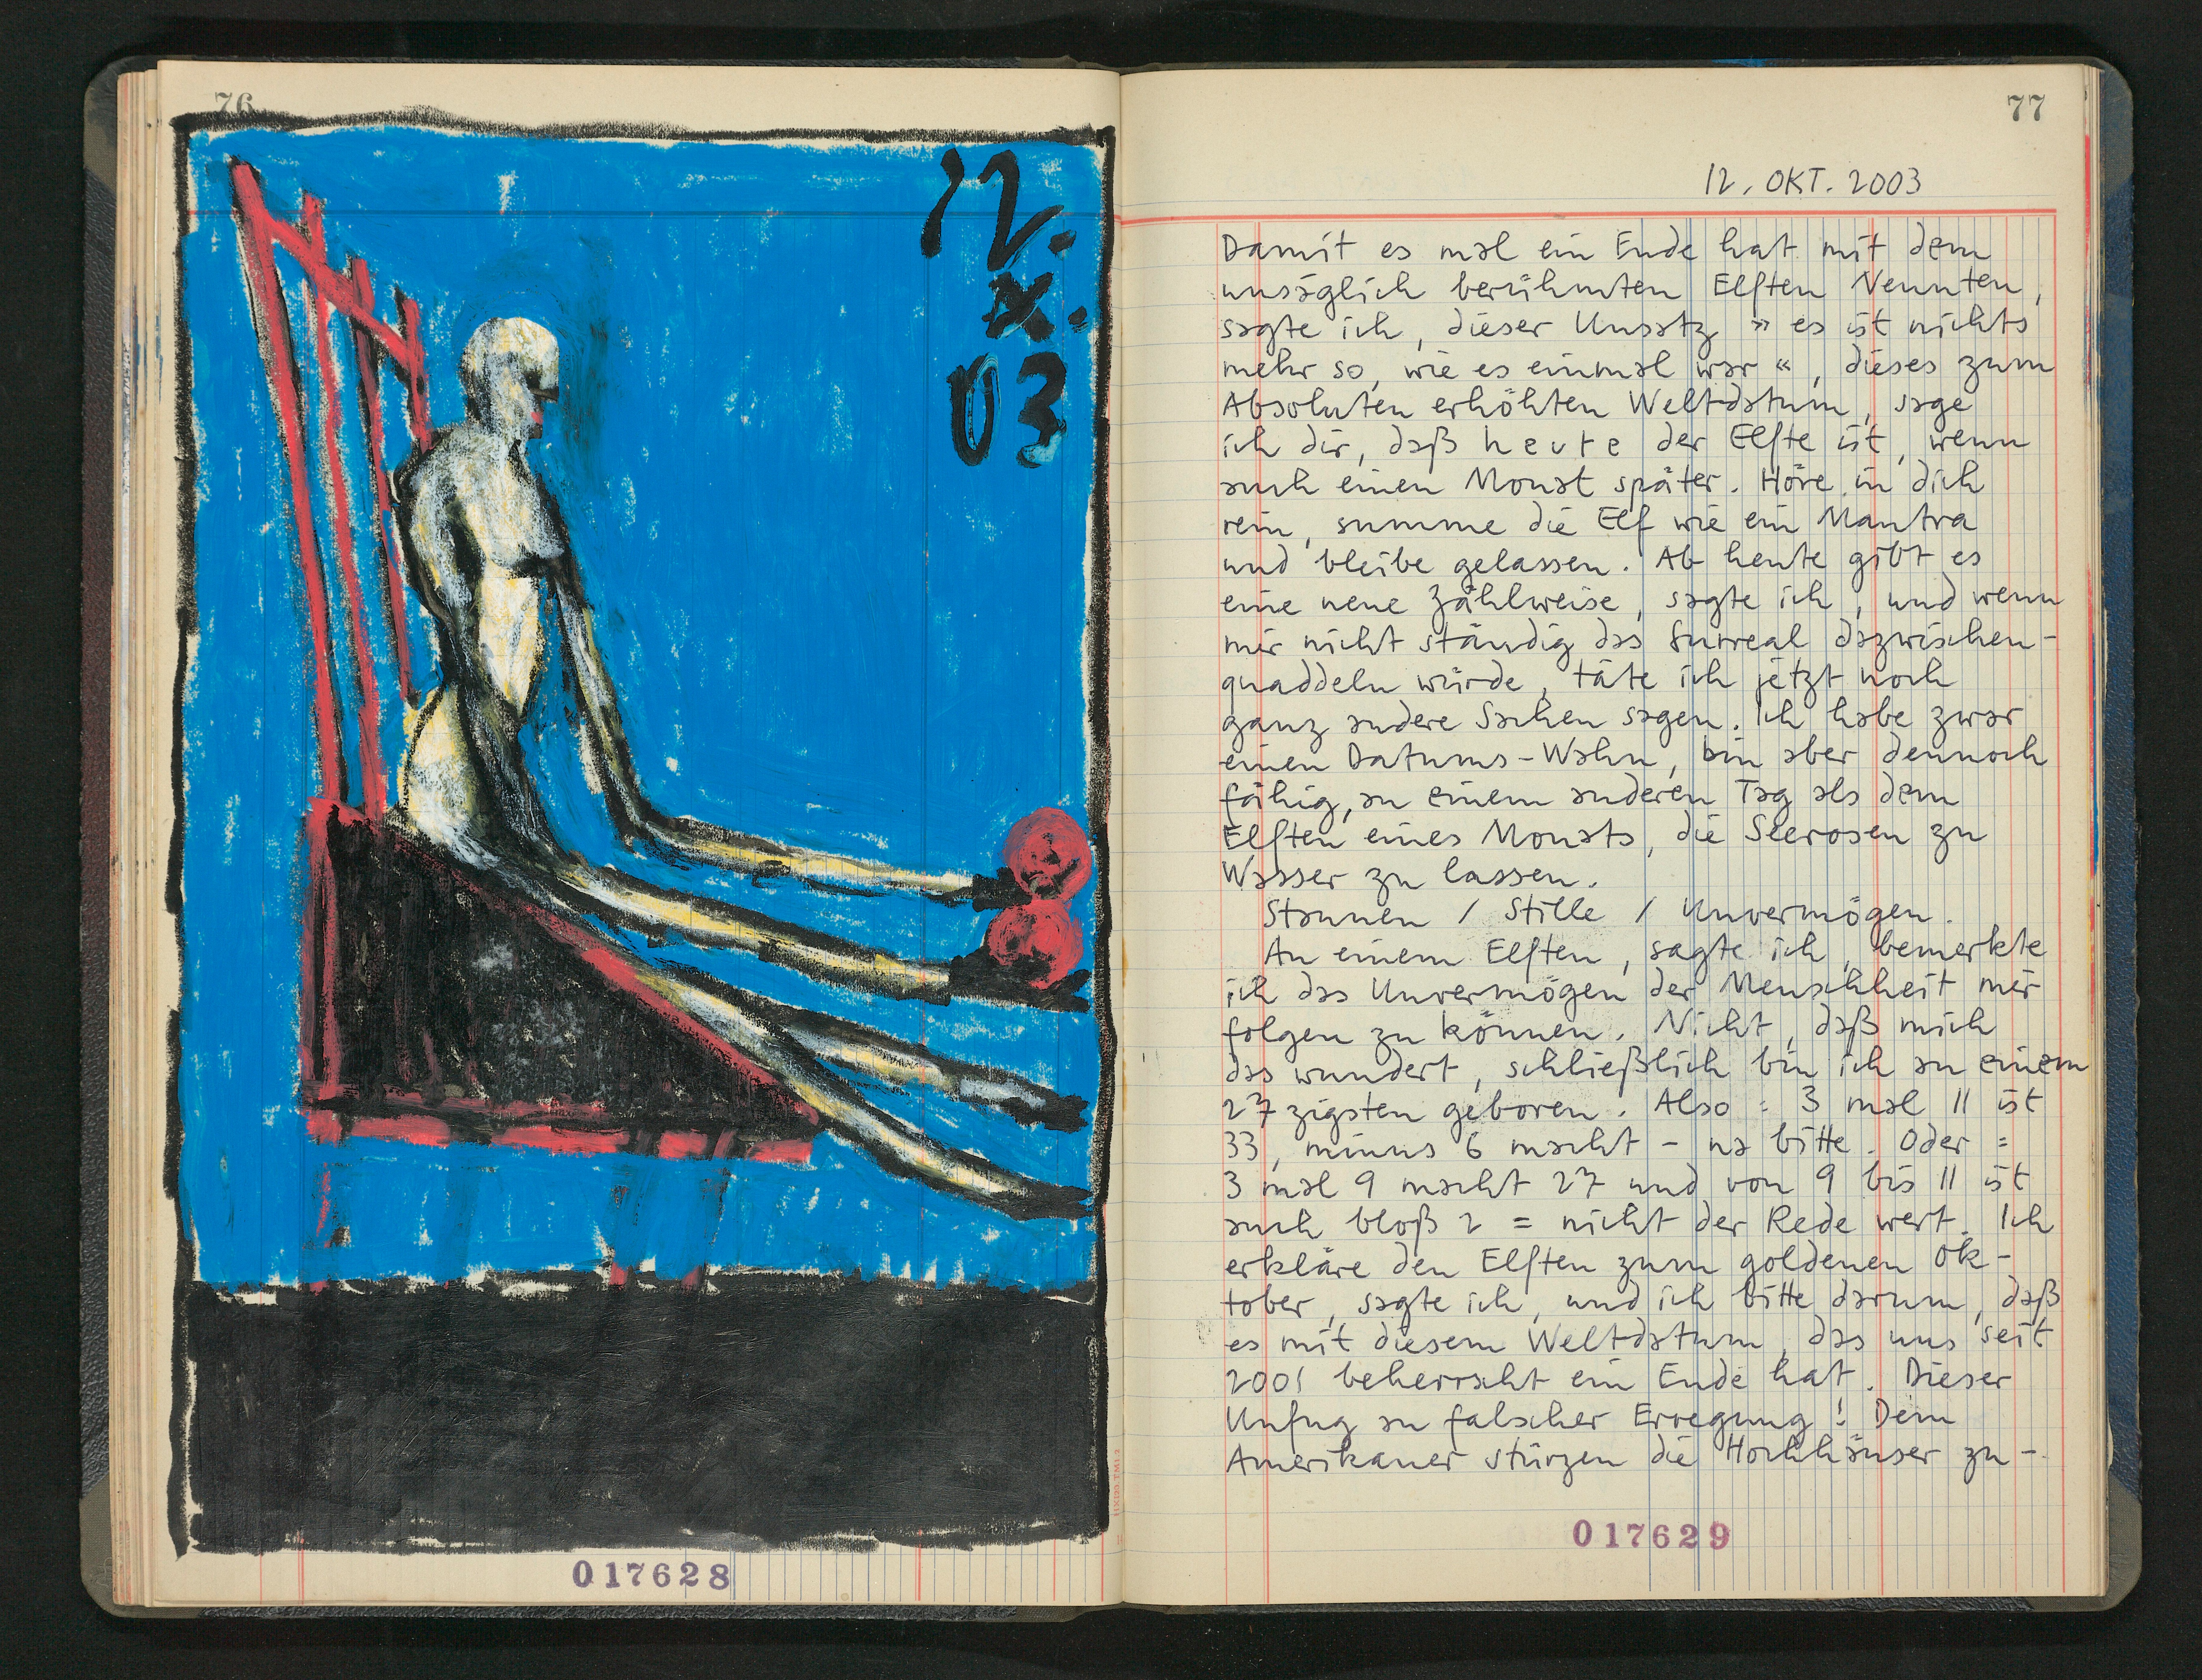 76
12.
X.
03
017628
77
12. OKT. 2003
Damit es mal ein Ende hat mit dem
unsäglich berühmten Elften Neunten,
sagte ich, dieser Unsatz » es ist nichts
mehr so, wie es einmal war «, dieses zum
Absoluten erhöhten Weltdatum, sage
ich dir, daß heute der Elfte ist, wenn
auch einen Monat später. Höre in dich
rein, summe die Elf wie ein Mantra
und bleibe gelassen. Ab heute gibt es
eine neue Zählweise, sagte ich, und wenn
mir nicht ständig das Surreal dazwischen-
quaddeln würde, täte ich jetzt noch
ganz andere Sachen sagen. Ich habe zwar
einen Datums-Wahn, bin aber dennoch
fähig, an einem anderen Tag als dem
Elften eines Monats, die Seerosen zu
Wasser zu lassen.
Staunen / Stille / Unvermögen.
An einem Elften, sagte ich, bemerkte
ich das Unvermögen der Menschheit mir
folgen zu können. Nicht, daß mich
das wundert, schließlich bin ich an einem
27zigsten geboren. Also = 3 mal 11 ist
33, minus 6 macht - na bitte. Oder =
3 mal 9 macht 27 und von 9 bis 11 ist
auch bloß 2 = nicht der Rede wert. Ich
erkläre den Elften zum goldenen Ok-
tober, sagte ich, und ich bitte darum, daß
es mit diesem Weltdatum, das uns seit
2001 beherrscht ein Ende hat. Dieser
Unfug an falscher Erregung! Dem
Amerikaner stürzen die Hochhäuser zu-
017629